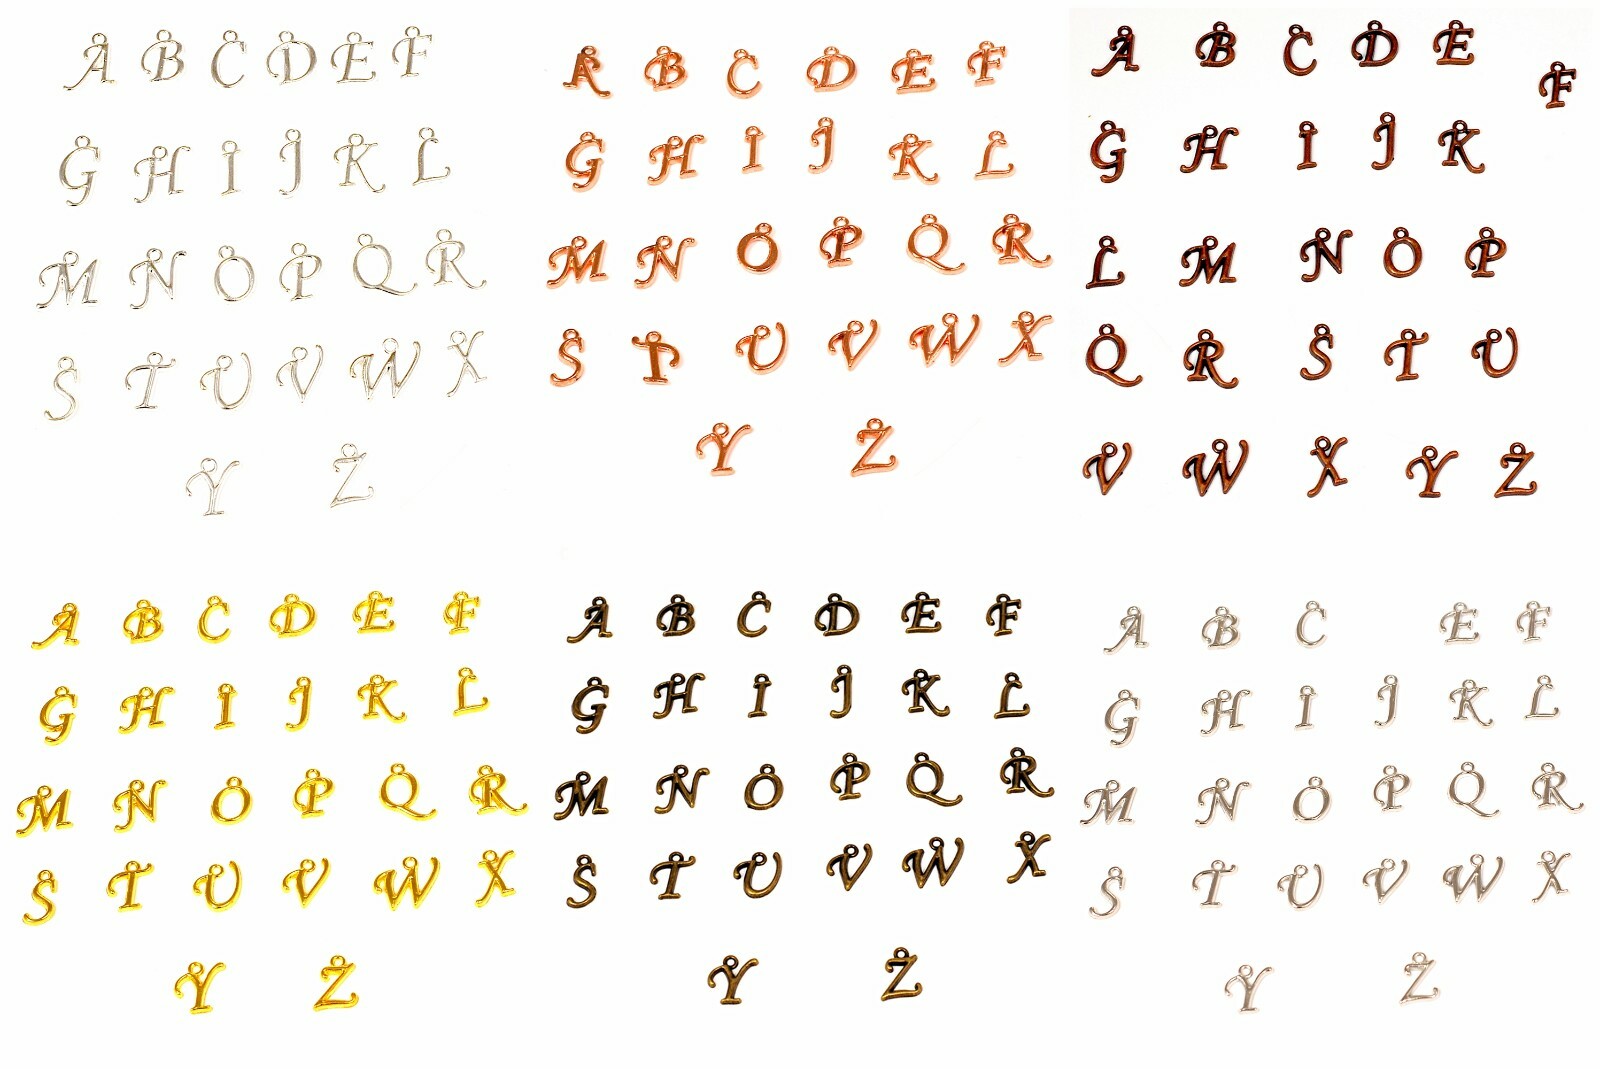 A B C D E F
G H I J K L
M N O P Q R
S T U V W X
Y Z
A B C D E F
G H I J K L
M N O P Q R
S T U V W X
Y Z
A B C D E F
G H I J K
L M N O P
Q R S T U
V W X Y Z
A B C D E F
G H I J K L
M N O P Q R
S T U V W X
Y Z
A B C D E F
G H I J K L
M N O P Q R
S T U V W X
Y Z
A B C E F
G H I J K L
M N O P Q R
S T U V W X
Y Z